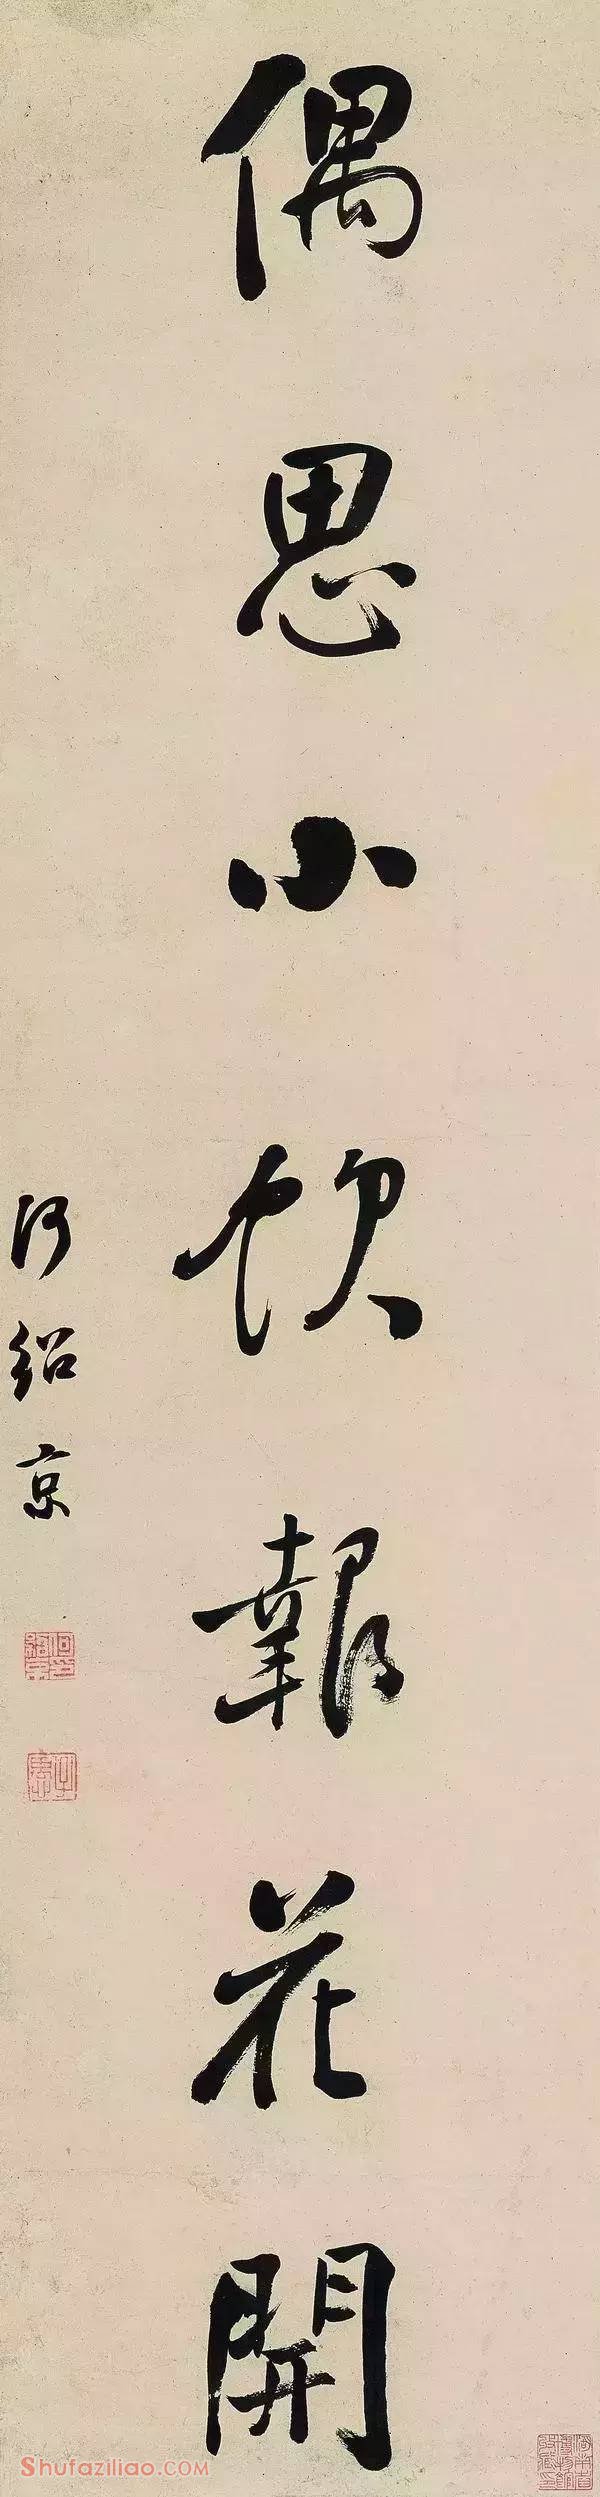 偶思小飲報花開
何紹京
Shufaziliao.com